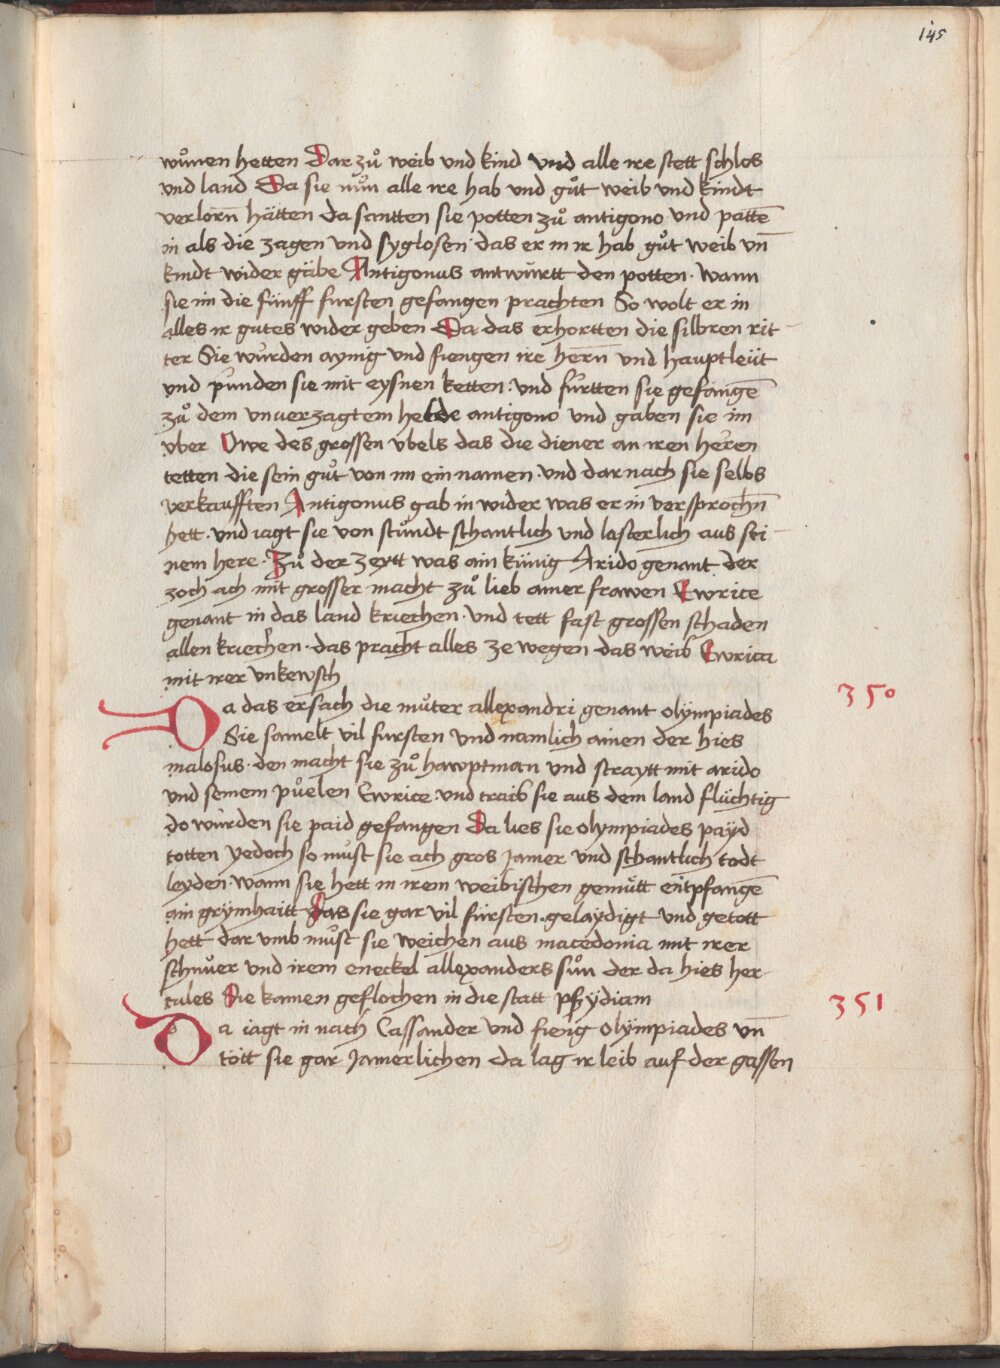 145
wůnen hetten Dar zů weib vnd kind vnd alle ire stett schlos
vnd land Da sie nůn alle ire hab vnd gůt weib vnd kindt
verlorn̄ hätten da santten sie potten zů antigono vnd pattē
in als die zagen vnd syglosen das er in ir hab gůt weib vn̄
kindt wider gäbe Antigonus antwürtt den potten · wann
sie im die fünff fursten gefangen prachten So wolt er in
alles ir gutes wider geben Da das erhortten die silbren rit
ter Sie wurden aynig vnd fiengen ire hern̄ vnd hauptleüt
vnd punden sie mit eysnen ketten · vnd fürtten sie gefangē
zů dem vnuerzagtem helde antigono vnd gaben sie im
vber Owe des grossen vbels das die diener an iren heren
tetten die sein gůt von im ein namen · vnd dar nach sie selbs
verkaufften Antigonus gab in wider was er in versprochn̄
hett · vnd iagt sie von stůndt schantlich vnd lasterlich aus sei
nem here · Zů der zeytt was ain künig Arido genant der
zoch ach mit grosser macht zů lieb ainer frawen Ewrice
genant in das land kriechen · vnd tett fast grossen schaden
allen kriechen · das pracht alles ze wegen das weib Ewrica
mit irer vnkewsch
350
Da das ersach die můter allexandri genant olÿmpiades
Sie samelt vil fursten vnd namlich ainen der hies
malosus · den macht sie zů hawptman vnd straytt mit arido
vnd seinem půelen Ewrice vnd traib sie aus dem land flüchtig
do wurden sie paid gefangen Da lies sie olympiades payd
totten yedoch so můst sie ach gros Jamer vnd schantlich todt
leyden · wann sie hett in irem weibischen gemůtt entpfangē
ain grÿmhaitt Das sie gar vil fürsten · gelaÿdigt vnd getott
hett dar vmb můst sie weichen aus macedonia mit irer
schnůer vnd irem eneckel allexanders sůn der da hies her
cules Sie kamen geflochen in die statt phÿdiam
351
Da iagt in nach Cassander vnd fieng olÿmpiades vn̄
tott sie gar Jamerlichen da lag ir leib auf der gassen